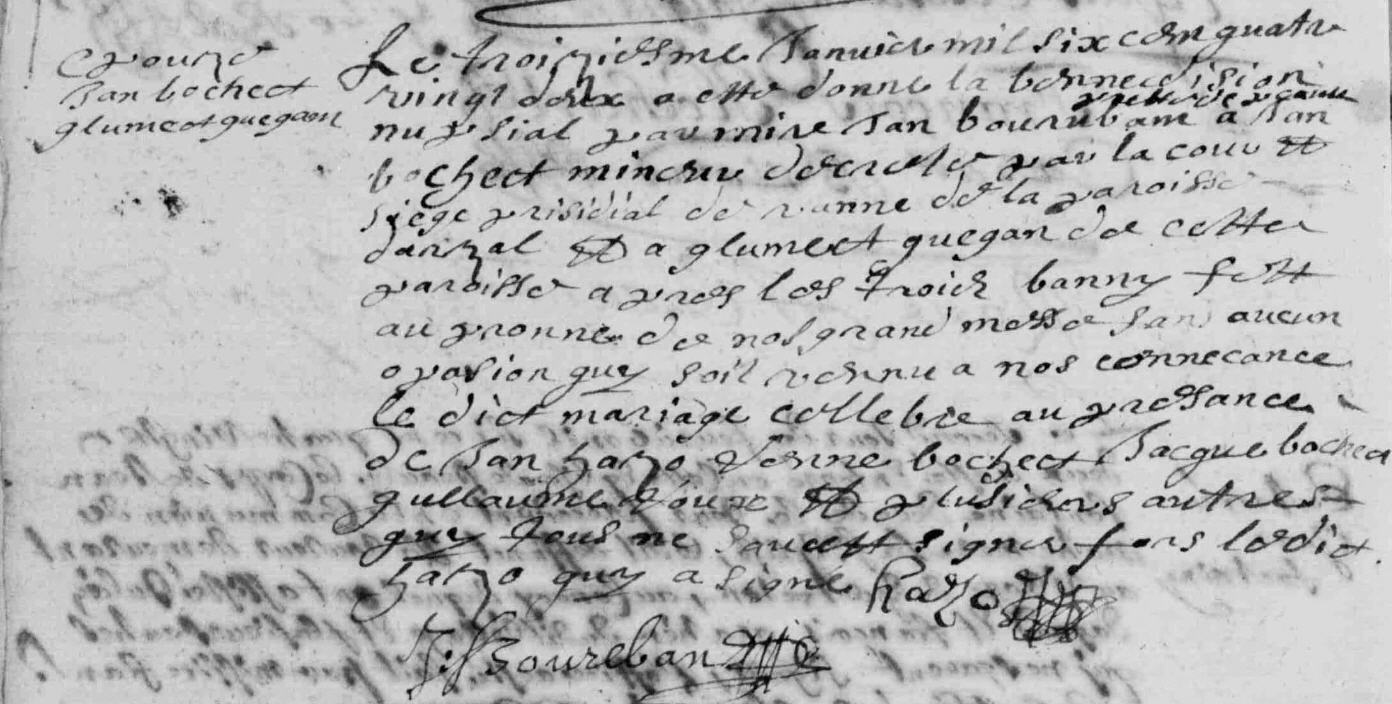 epouze
Jan bochect
glumeot guegan
Le troiziesme Janvier mil six cem quatre
vingt deux a este donne la bennedision
nupsial par mire Jan bourubam prestre de a Jan
bochect mineur decrete par la cour et
siege prisidial de vanne de la paroisse
darzal et a glumect guegan de cette
paroisse apres les troiez banny fett
au pronne de nos grand messe sans aucun
oposion quy soit vennu a nos connecance
le dict mariage cellebre au pressance
de Jan hazo venne bochect Jacque bochect
gullaume et plusiers autres
quy tous ne savent signer fors ledict
hazo quy a signe hazo
J: Boureban